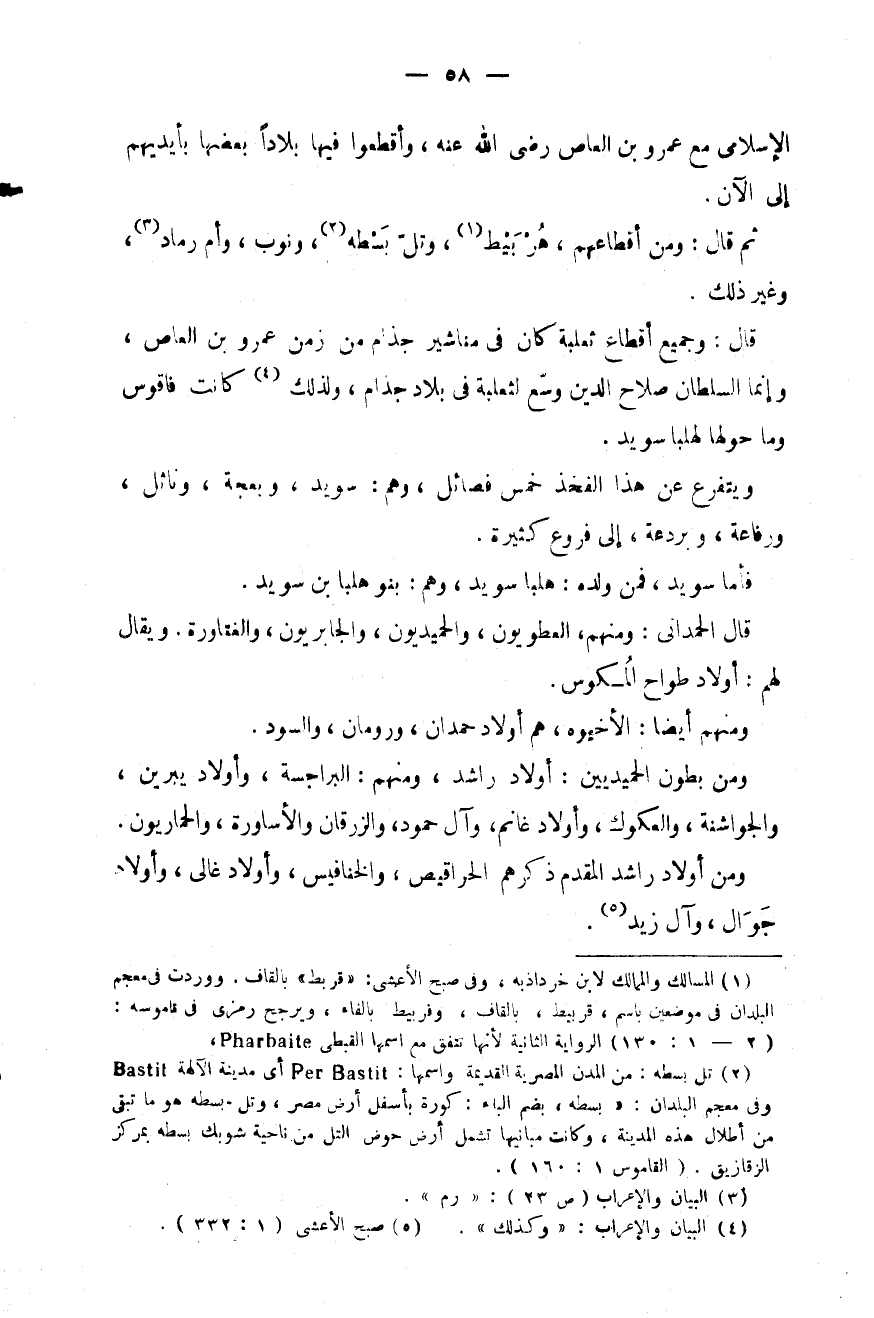 — ٥٨ —
الإسلامى مع عمرو بن العاص رضى الله عنه ، وأقطعوا فيها بلاداً بعضها بأيديهم
إلى الآن .
ثم قال : ومن أقطاعهم ، هُرْبَيْط(١) ، وتلّ بَسْطه(٢)، ونوب ، وأم رماد(٣)،
وغير ذلك .
قال : وجميع أقطاع ثعلبة كان فى مناشير جذام من زمن عمرو بن العاص ،
وإنما السلطان صلاح الدين وسّع لثعلبة فى بلاد جذام ، ولذلك (٤) كانت فاقوس
وما حولها لهلبا سويد .
ويتفرع عن هذا الفخذ خمس فصائل ، وهم : سويد ، وبعجة ، وناثل ،
ورفاعة ، وبردعة ، إلى فروع كثيرة .
فأما سويد ، فمن ولده : هلبا سويد ، وهم : بنو هلبا بن سويد .
قال الحمدانى : ومنهم، العطويون ، والحميديون ، والجابريون ، والغتاورة . ويقال
لهم : أولاد طواح المُـكوس .
ومنهم أيضا : الأخيوه ، هم أولاد حمدان ، ورومان ، والسود .
ومن بطون الحميديين : أولاد راشد ، ومنهم : البراجسة ، وأولاد يبرين ،
والجواشنة ، والعكوك ، وأولاد غانم، وآل حمود، والزرقان والأساورة ، والحماريون .
ومن أولاد راشد المقدم ذكرهم الحراقيص ، والخنافيس ، وأولاد غالى ، وأولاد
جَوَال ، وآل زيد(٥) .
(١) المسالك والممالك لابن خرداذبه ، وفى صبح الأعشى: «قربط» بالقاف . ووردت فى معجم
البلدان فى موضعين باسم ، قربيط ، بالقاف ، وفربيط بالفاء ، ويرجح رمزى فى قاموسه :
( ٢ — ١ : ١٣٠) الرواية الثانية لأنها تتفق مع اسمها القبطى Pharbaite ،
(٢) تل بسطه : من المدن المصرية القديمة واسمها : Per Bastit أى مدينة الآلهة Bastit
وفى معجم البلدان : « بسطه ، بضم الباء : كورة بأسفل أرض مصر ، وتل بسطه هو ما تبقى
من أطلال هذه المدينة ، وكانت مبانيها تشمل أرض حوض التل من ناحية شوبك بسطه بمركز
الزقازيق . ( القاموس ١ : ١٦٠ ) .
(٣) البيان والإعراب ( ص ٢٣ ) : « رم » .
(٤) البيان والإعراب : « وكذلك » . (٥) صبح الأعشى ( ١ : ٣٣٢ ) .